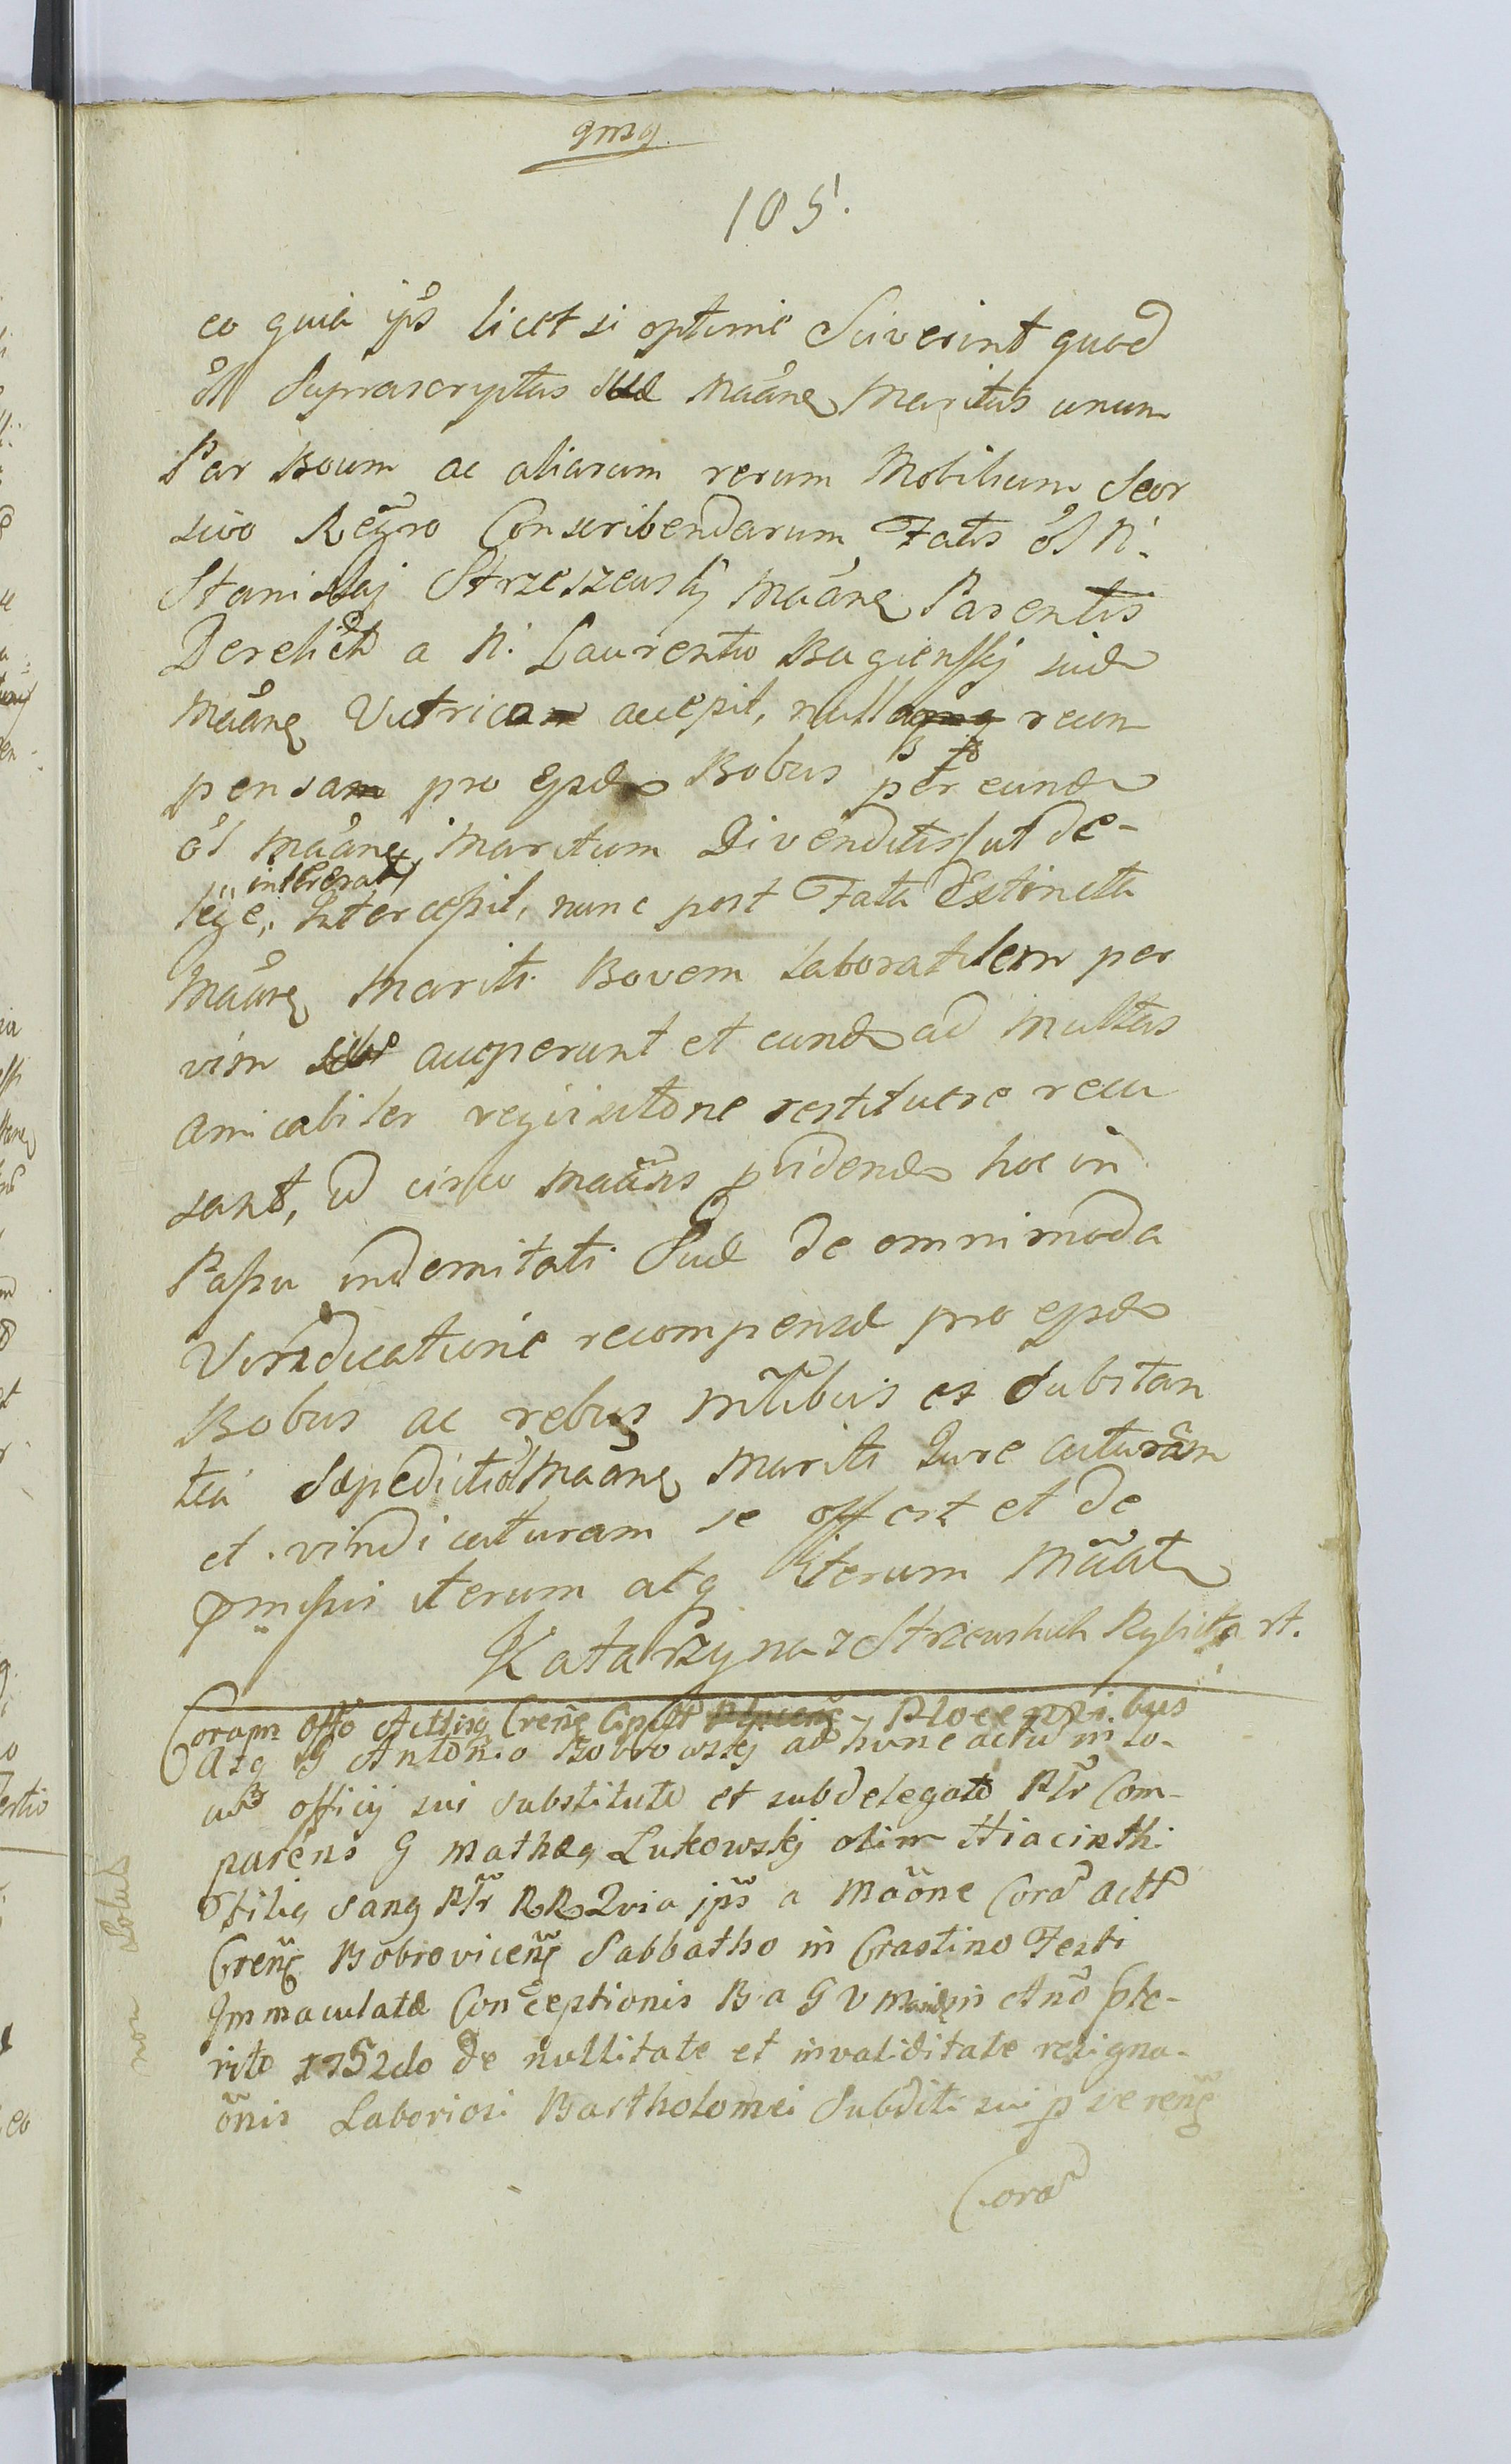 qmq
105.
eo quia ip̃s licet si optime Sciverint quod
õl Suprascriptus suæ Mãanẽ Maritus unum
Par Boum ac aliarum rerum Mobilium Seor
sivo Regr̃o Conscribendarum Fatis õl N.
Stanislaj Strzeszewskj Mãanẽ Parentis
Derelict a N. Laurentio Bagienskj suæ
Mãanẽ Vitrico accepit, nullam recom
pensam pro ejsd Bobus per eund
õl Mãanẽ Maritum Divenditis ut de-
intererat
lege, Intercepit, nunc post Fata Extincta
Mãanẽ Mariti Bovem laboratilem per
vim acceperunt et eund ad multas
amicabiliter requisitõne restituere recu
sant, id circo Mãans pvidend hoc in
Passu indemnitati Suæ de omnimoda
Vindicatione recompensæ pro ejsd
Bobus ac rebus Mlibus ex Substan
tia Sæpedicti õl Mãanẽ Mariti Jure acturam
et vindicaturam se offert et de
pmissis iterum atq iterum Mãat
Katarzyna z Strzewskich Rybicka st.
Coram Offo Actisq Cren̄s Cap̃tt Plocensibus
Atq G Antonio Bobrowskj ad hunc actu in lo-
cū officij sui substituto et subdelegato Pl̃r Com-
parens G Matheq Lukowskj olim Hiacinthi
filiq sanq Pl̃r RR Quia ip̃s a Mãone Corã actt
Cren̄s Bobrovicen̄s Sabbatho in Crastino Festi
Immaculatæ Conceptionis B a G V Mariæ in Ano pte-
rito 1752do de nullitate et invaliditate resigna-
õnis Laboriosi Bartholomei Subditi sui p se ren̄s
Corã
non solut